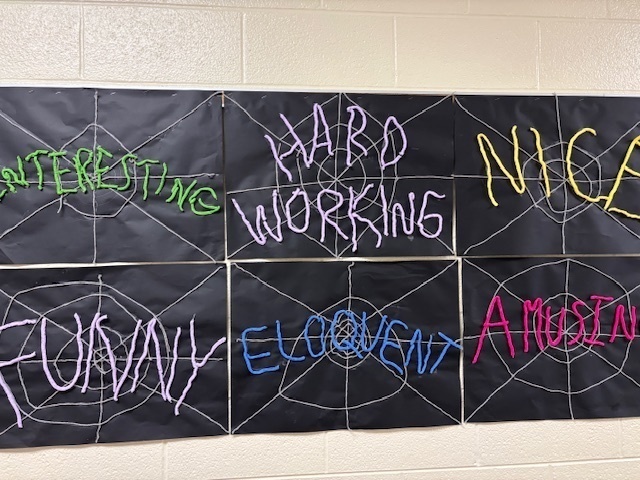 INTERESTING
HARD
WORKING
NICE
FUNNY
ELOQUENT
AMUSIN